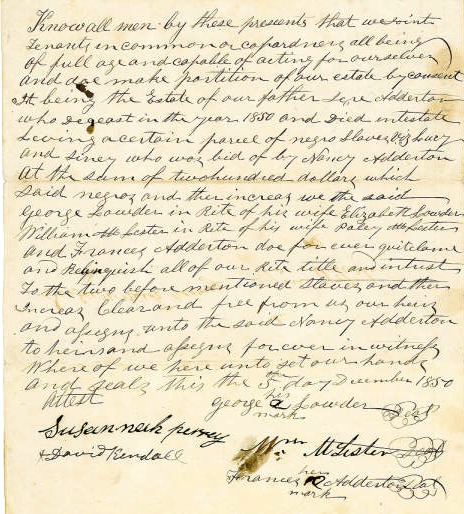 Know all men by these presents that we joint
tenants in common or copardners all being
of full age and capable of acting for ourselves
and doe make partition of our estate by consent
it being the Estate of our father Adderton
who deceast in the year 1850 and Died intestate
Leving a certain parcel of negro Slaves viz Lucy
and Siney who woz bid of by Nancy Adderton
at the sum of two hundred dollars which
said negroz and ther increaz we the said
George Lowder in Rite of his wife Elizabeth Lowder
William McLester in Rite of his wife Patcy McLester
and Francez Adderton doe for ever quitclame
and Relinquish all of our Rite title and intrust
To the two before mentioned slaves and ther
increaz Clear and free from us our heirz
and assignz unto the said Nancy Adderton
to heirs and assignz for ever in witnesz
Where of we here unto set our handz
and sealz this the 5th day December 1850
Attest
George his Lowder Seal
mark
Susannah
David Kendall
Wm McLester Seal
Francez her Adderton Seal
mark